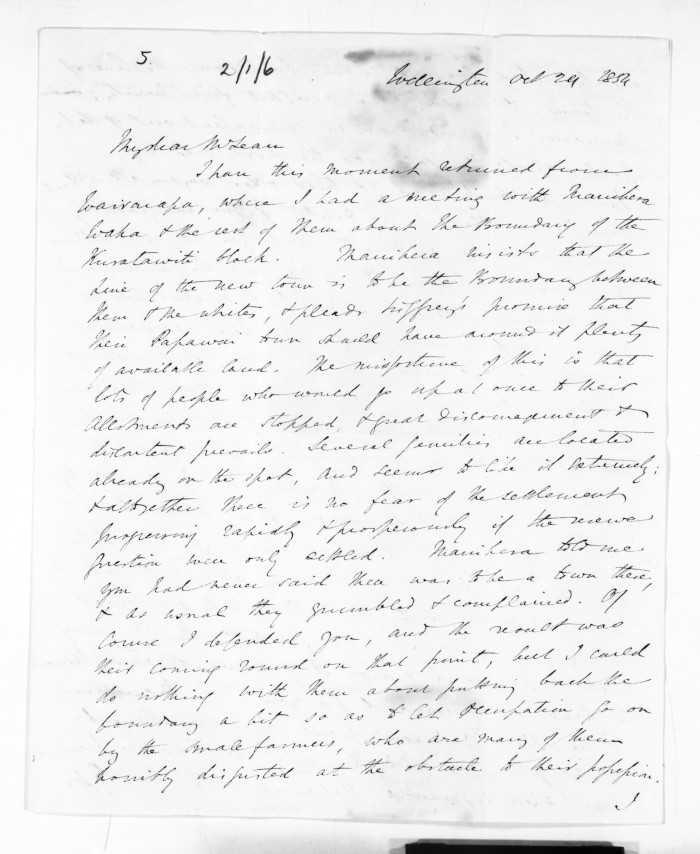 5
2/1/6
Wellington Oct 24 1854
My dear McLean
I have this moment returned from
Wairarapa, where I had a meeting with Manihera
Waka & the rest of them about the Boundary of the
Kuratawiti block. Manihera insists that the
Line of the new town is to be the Boundary between
them & the whites, & pleads Sir Grey's promise that
their Papawai town should have around it plenty
of available land. The misfortune of this is that
lots of people who would go up at once to their
Allotments are stopped, & great discouragement &
discontent prevails. Several families are located
already on the spot, and seems to like it extremely;
& altogether there is no fear of the settlement
progressing rapidly & prosperously if the reserve
question were only settled. Manihera told me
you had never said there was to be a town there,
& as usual they grumbled & complained. Of
Course I defended you, and the result was
their coming round on that point, but I could
do nothing with them about putting back the
boundary a bit so as to let occupation go on
by the small farmers, who are many of them
horribly disgusted at the obstacle to their possession.
I